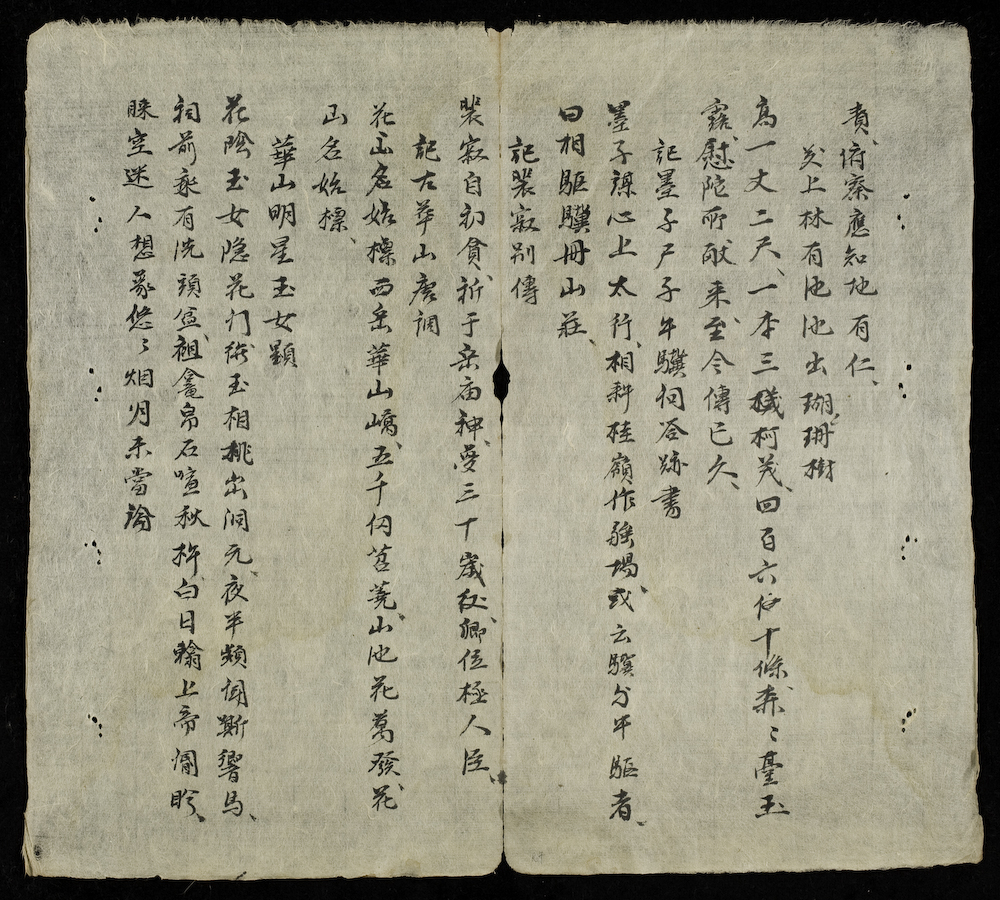 責、府寮應知地有仁、
炎上林有池池出瑚珊樹
高一丈二尺、一本三橃柯茂、四百六十條森〻臺玉
露、慰陀所献来至今傳已久、
記墨子尸子午驥伺答跡書
墨子謀心上太行、相耕硅嶺作強場、或云驥分午驅者、
曰相驅驥毋山莊、
記裴寂别傳
裴寂自初貧、祈于岳庙神、受三十歲後、卿位極人臣、
記古華山唐調
花山名始標西岳華山嶠、五千仞苕蕘、山池花萬發花、
山名始標、
華山明星玉女顯
花陰玉女隐花门、術玉相挑出洞元、夜半頻聞斯響馬、
祠前豕有洗頭盆、祖龕帛石喧秋杵、白日翰上帝閽眄、
睞空迷人想象悠〻烟月未當論